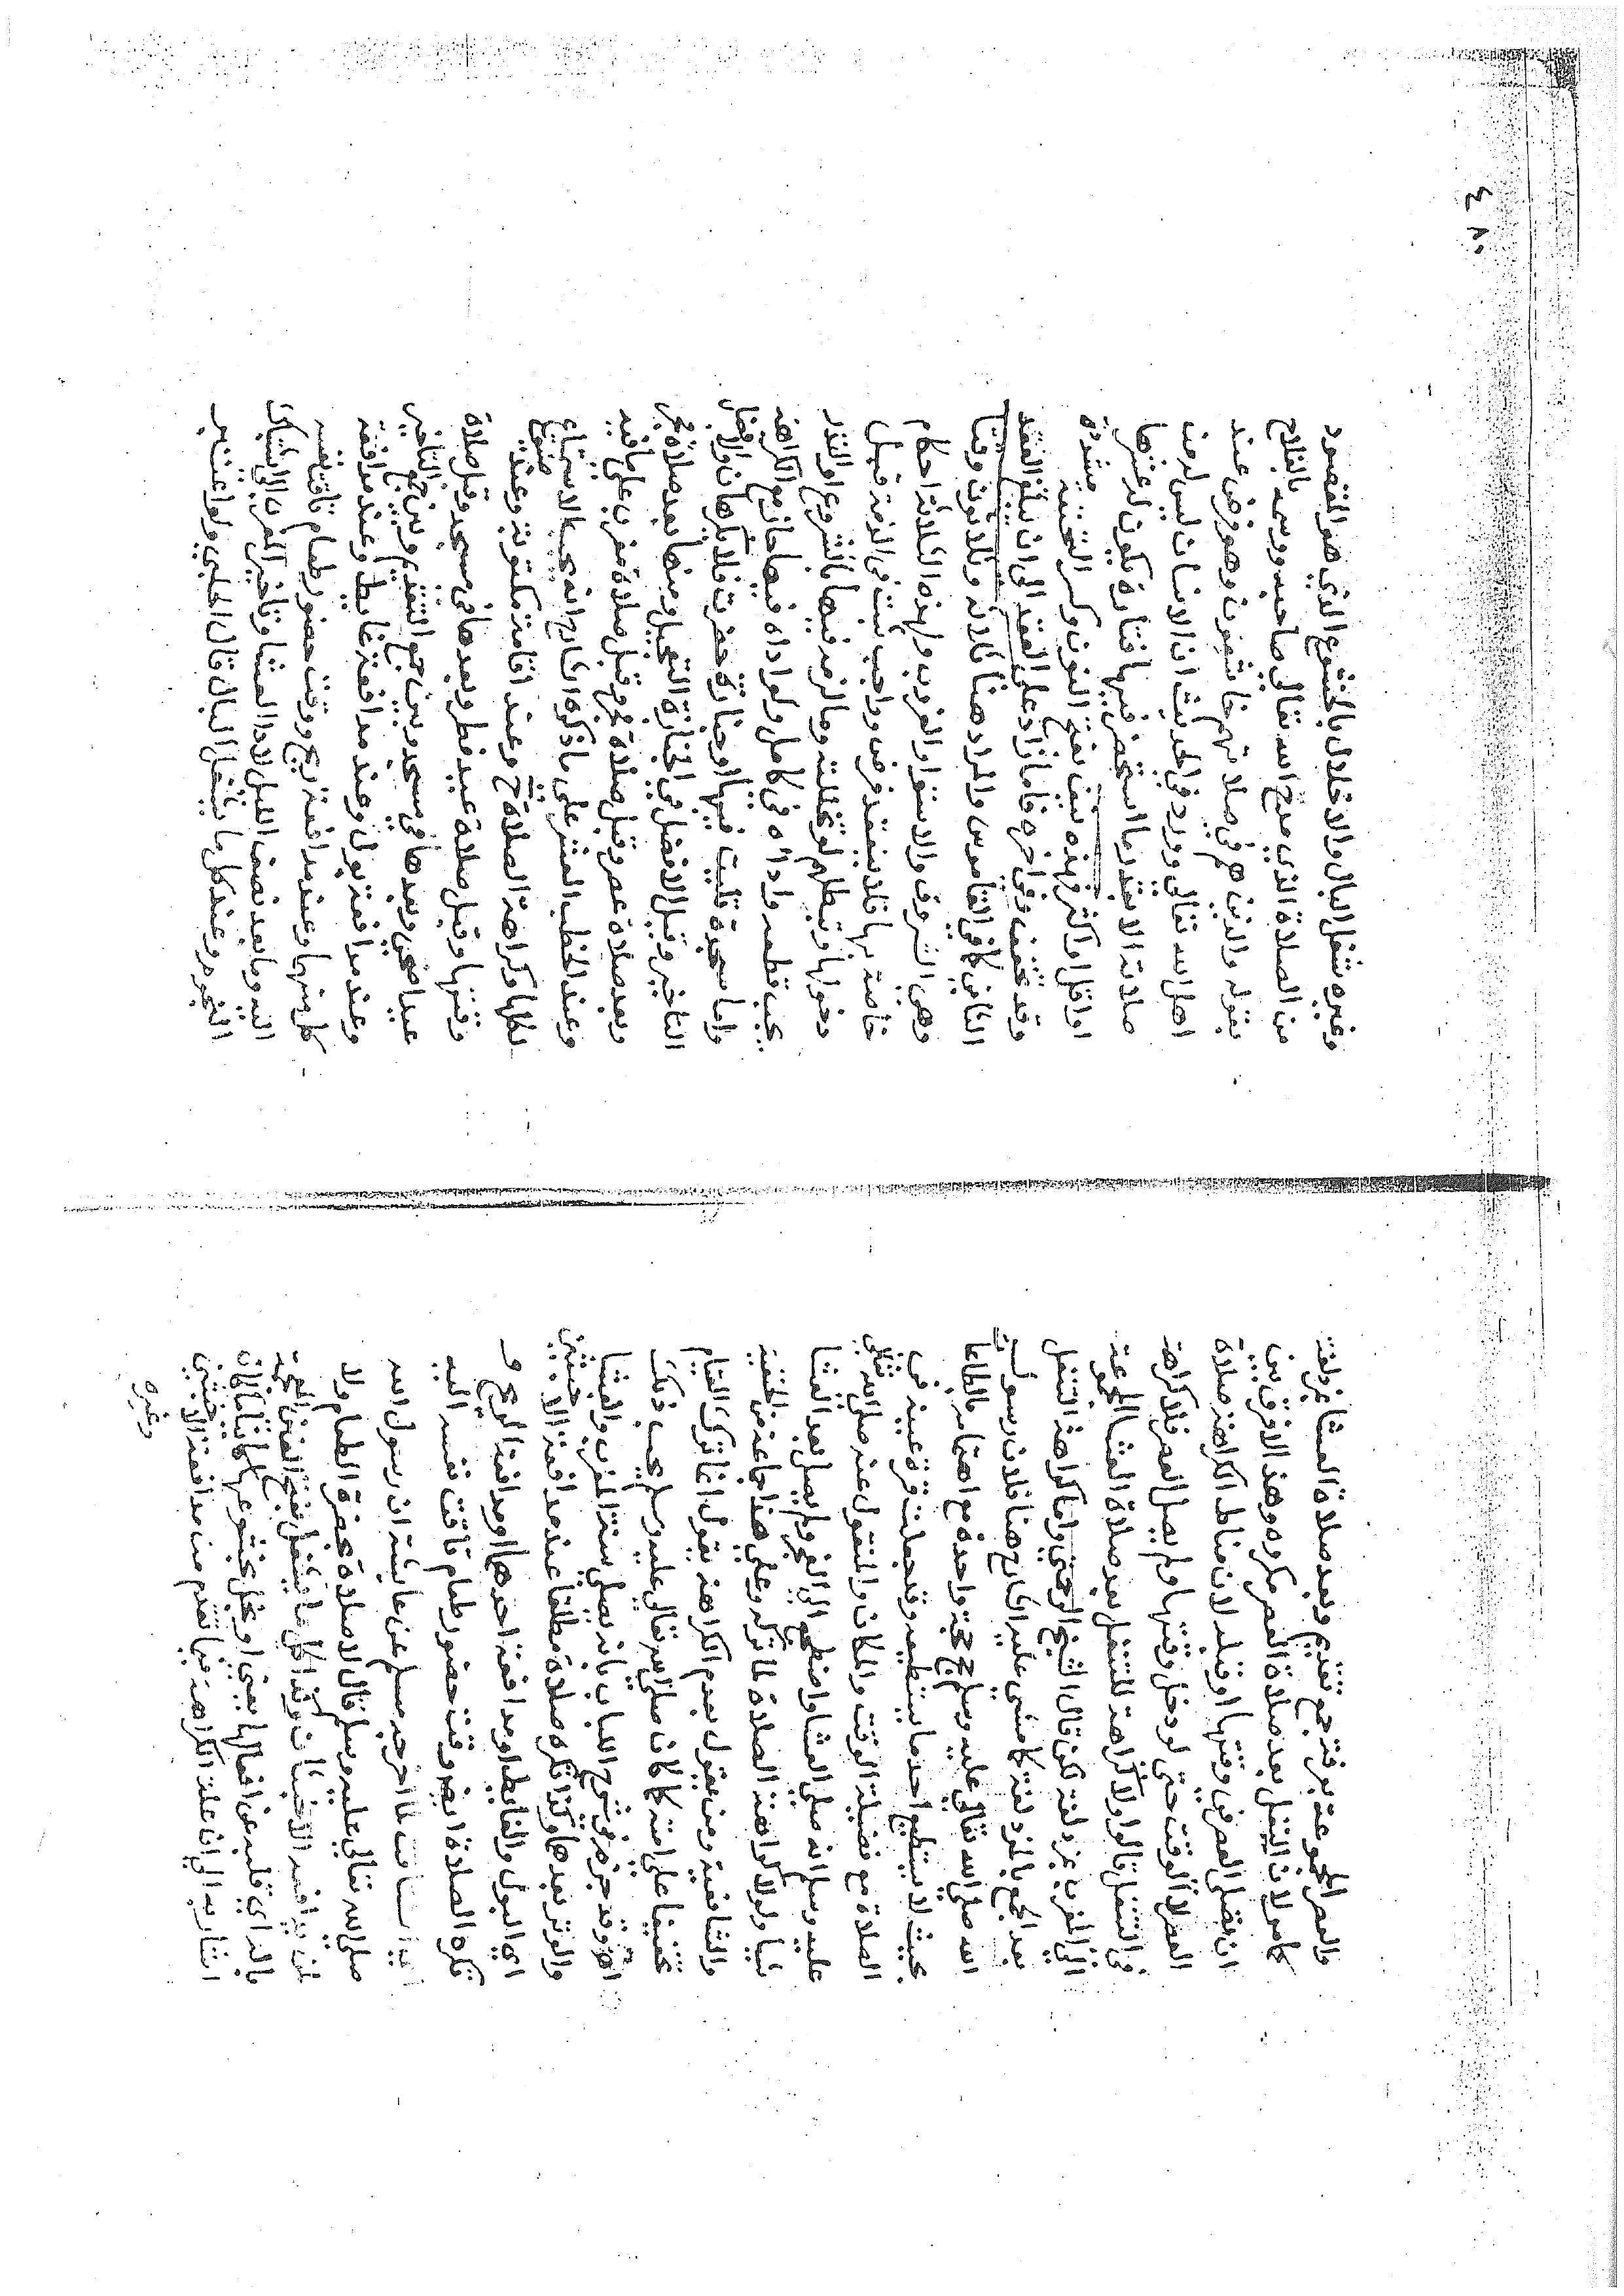 والعصر المجموعة بعرفة جمع تقديم وبعد صلاة العشا بمزدلفة
كما مر لان التنفل بعد صلاة العصر مكروه وهذ الافرق بين
ان يصلى العصر في وقتها او قبله لان مناط الكراهة صلاة
العصر لا الوقت حتى لو دخل وقتها ولم يصل العصر فلا كراهة
في التنفل قالوا ولا كراهة للتنفل بعد صلاة العشا المجموعة
الى المغرب بمزدلفة لكن قال الشيخ الرحمتي واما كراهة التنفل
بعد الجمع بالمزدلفة كما مشى عليه الشارح هنا فلان رسول
الله صلى الله تعالى عليه وسلم حج حجة واحدة مع اهتمامه بالطاعا
بحيث لا يستطيع احد ما يستطيعه وقد جعلت قرة عينه في
الصلاة مع فضيلة الوقت والمكان والمنقول عنه صلى الله تعالى
عليه وسلم انه صلى العشا واضطجع الى الفجر ولم يصل بعد العشا
شيا ولولا كراهة الصلاة لما تركه وعلى هذا جماعة من الحنفية
والشافعية ومن يقول بعدم الكراهة يقول انما ترك القيام
تخفيفا على امته كما كان صلى الله تعالى عليه وسلم يحب ذلك
اهـ وقد جزم في شرح اللباب بانه يصلي سنة المغرب والعشا
والوتر بعدها وكذا تكره صلاة مطلقا عند مدافعة الاخبثين
اي البول والغايط او مدافعة احدهما او مدافعة الريح و
تكره الصلاة ايضا وقت حضور طعام تاقت نفسه اليه
اي اشتاقت لما اخرجه مسلم عن عايشة ان رسول الله
صلى الله تعالى عليه وسلم قال لا صلاة بحضرة الطعام ولا
لمن يدافعه الاخبثان وكذا كل ما يشغل بفتح الغين المعجمة
باله اي قلبه عن افعالها يعني او يخل بخشوعها كاينا ما كان
اشار به الى ان علة الكراهة فيما تقدم من مدافعة الاخبثين
وغيره
٤٨٠
وغيره شغل البال والاخلال بالخشوع الذي هو المقصود
من الصلاة الذي مدح الله تعالى صاحبه ووسمه بالفلاح
بقوله والذين هم في صلاتهم خاشعون وهو فرض عند
اهل الله تعالى وورد في الحديث ان الانسان ليس له من
صلاته الا بقدر ما استحضر فيها فتارة يكون له عشرها
او اقل او اكثر فهذه نيف بفتح النون وكسر التحتية مشددة
وقد تخفف وفي اخره فا ما زاد على العقد الى ان يبلغ العقد
الثاني كما في القاموس والمراد هنا ثلاثة وثلاثون وقتا
وهي الشروق والاستوا والغروب ولهذه الثلاثة احكام
خاصة بها فلا ينعقد فرض وواجب ثبت في الذمة قبل
دخولها ويبطلهم لو تخللته وما لزمه فيها بالشروع او النذر
يجب قطعه واداه في كامل ولو اداه فيها جاز مع الكراهة
واما سجدة تليت فيها او جنازة حضرت فلا يكرهان والافضل
التاخير وقيل الافضل في الجنازة التعجيل ومنها بعد صلاة فجر
وبعد صلاة عصر وقبل صلاة فجر وقبل صلاة مغرب على ما فيه
وعند الخطب العشر على ما ذكره الشارح انه يجب الاستماع
لكلها وكراهة الصلاة ح وعند اقامة مكتوبة وعند ضيق
وقتها وقبل صلاة عيد فطر وبعدها في مسجد وقبل صلاة
عيد اضحى وبعدها في مسجد وبين جمع التقديم وبين جمع التاخير
وعند مدافعة بول وعند مدافعة غايط وعند مدافعة
كل منهما وعند مدافعة ريح ووقت حضور طعام تاقت نفسه
اليه وما بعد نصف الليل لادا العشا وتاخير المغرب الى اشتباك
النجوم وعند كل ما يشغل البال قال الحلبي ولو اعتبر